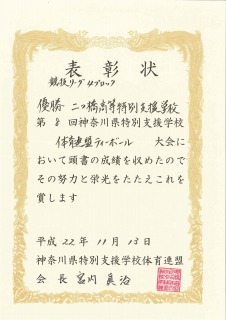 表彰状
競技リーグ4ブロック
優勝 二つ橋高等特別支援学校
第8回神奈川県特別支援学校
体育連盟ティーボール 大会に
おいて頭書の成績を収めたので
その努力と栄光をたたえこれを
賞します
平成22年11月13日
神奈川県特別支援学校体育連盟
会長 宮内眞治